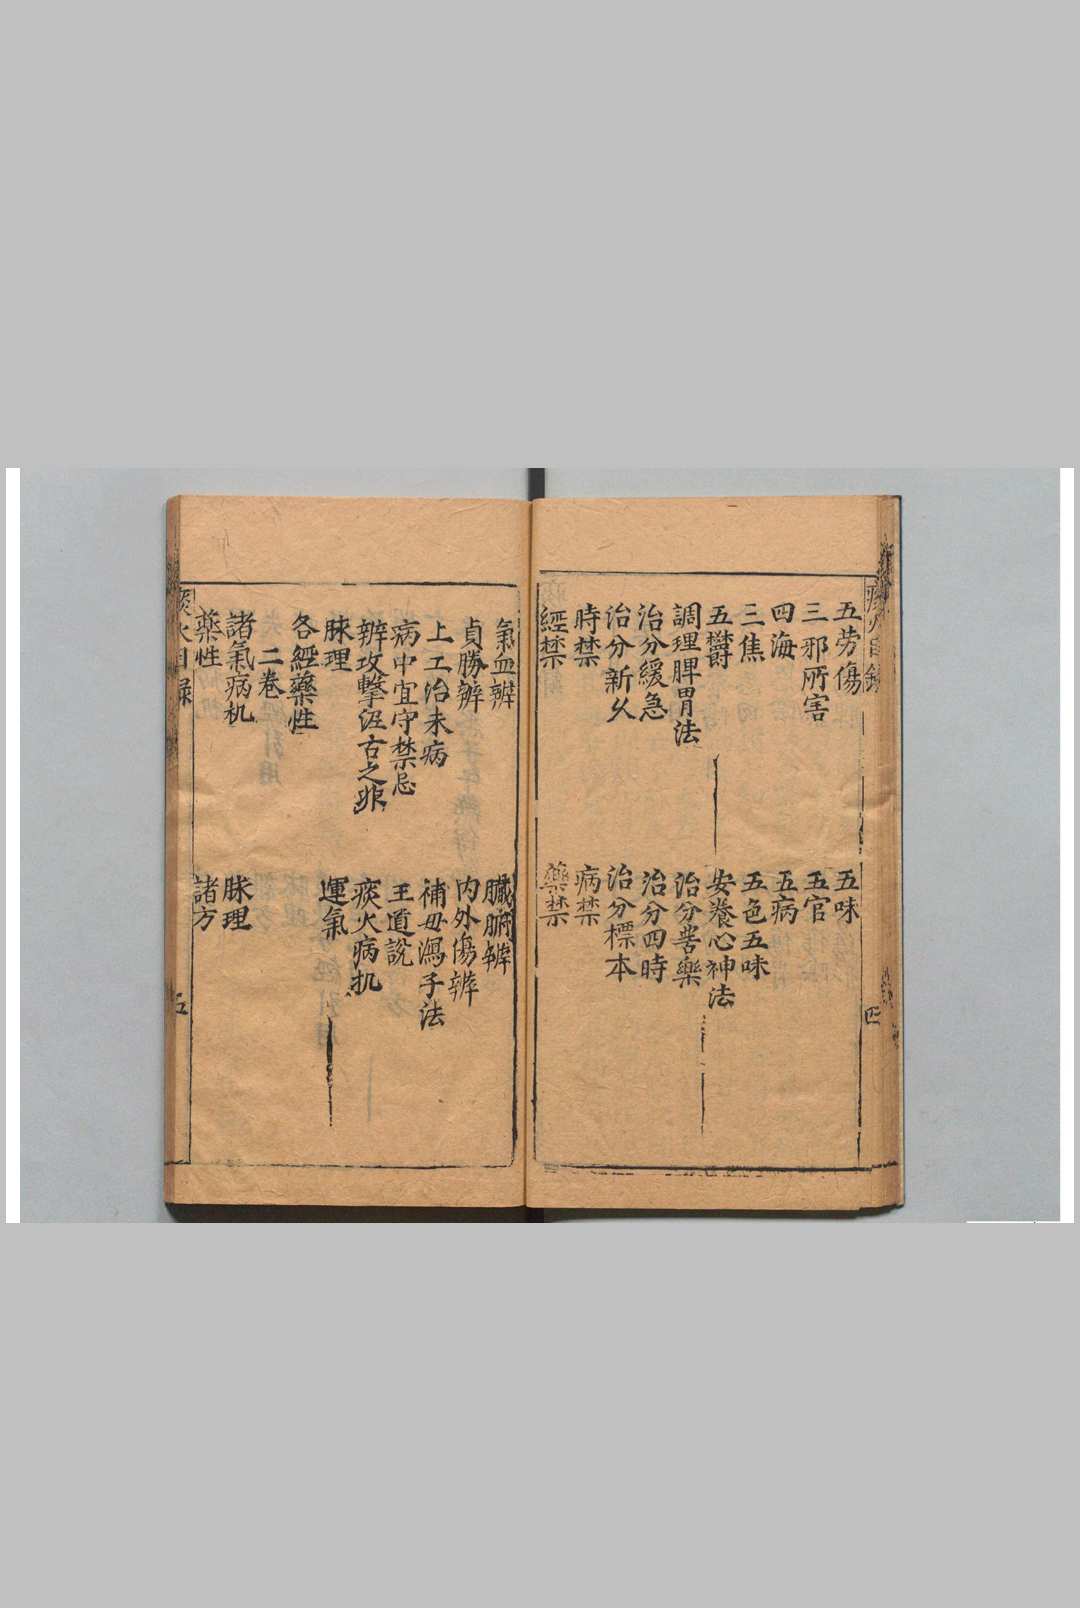 五劳傷 五味
三邪所害 五官
四海 五病
三焦 五色五味
五欝 安養心神法
調理脾胃法 治分苦樂
治分緩急 治分四時
治分新久 治分標本
時禁 病禁
經禁 藥禁
四
氣血辨 臟腑辨
貞勝辨 内外傷辨
上工治未病 補母瀉子法
病中宜守禁忌 王道説
辨攻擊泥古之非 痰火病机
脉理 運氣
各經藥性
二巻
諸氣病机 脉理
藥性 諸方
痰火目録
五